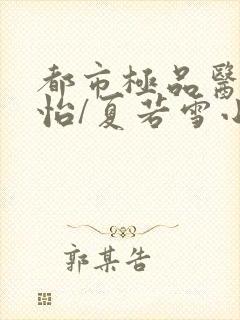 都市極品醫
怡/夏若雪小
郭某告